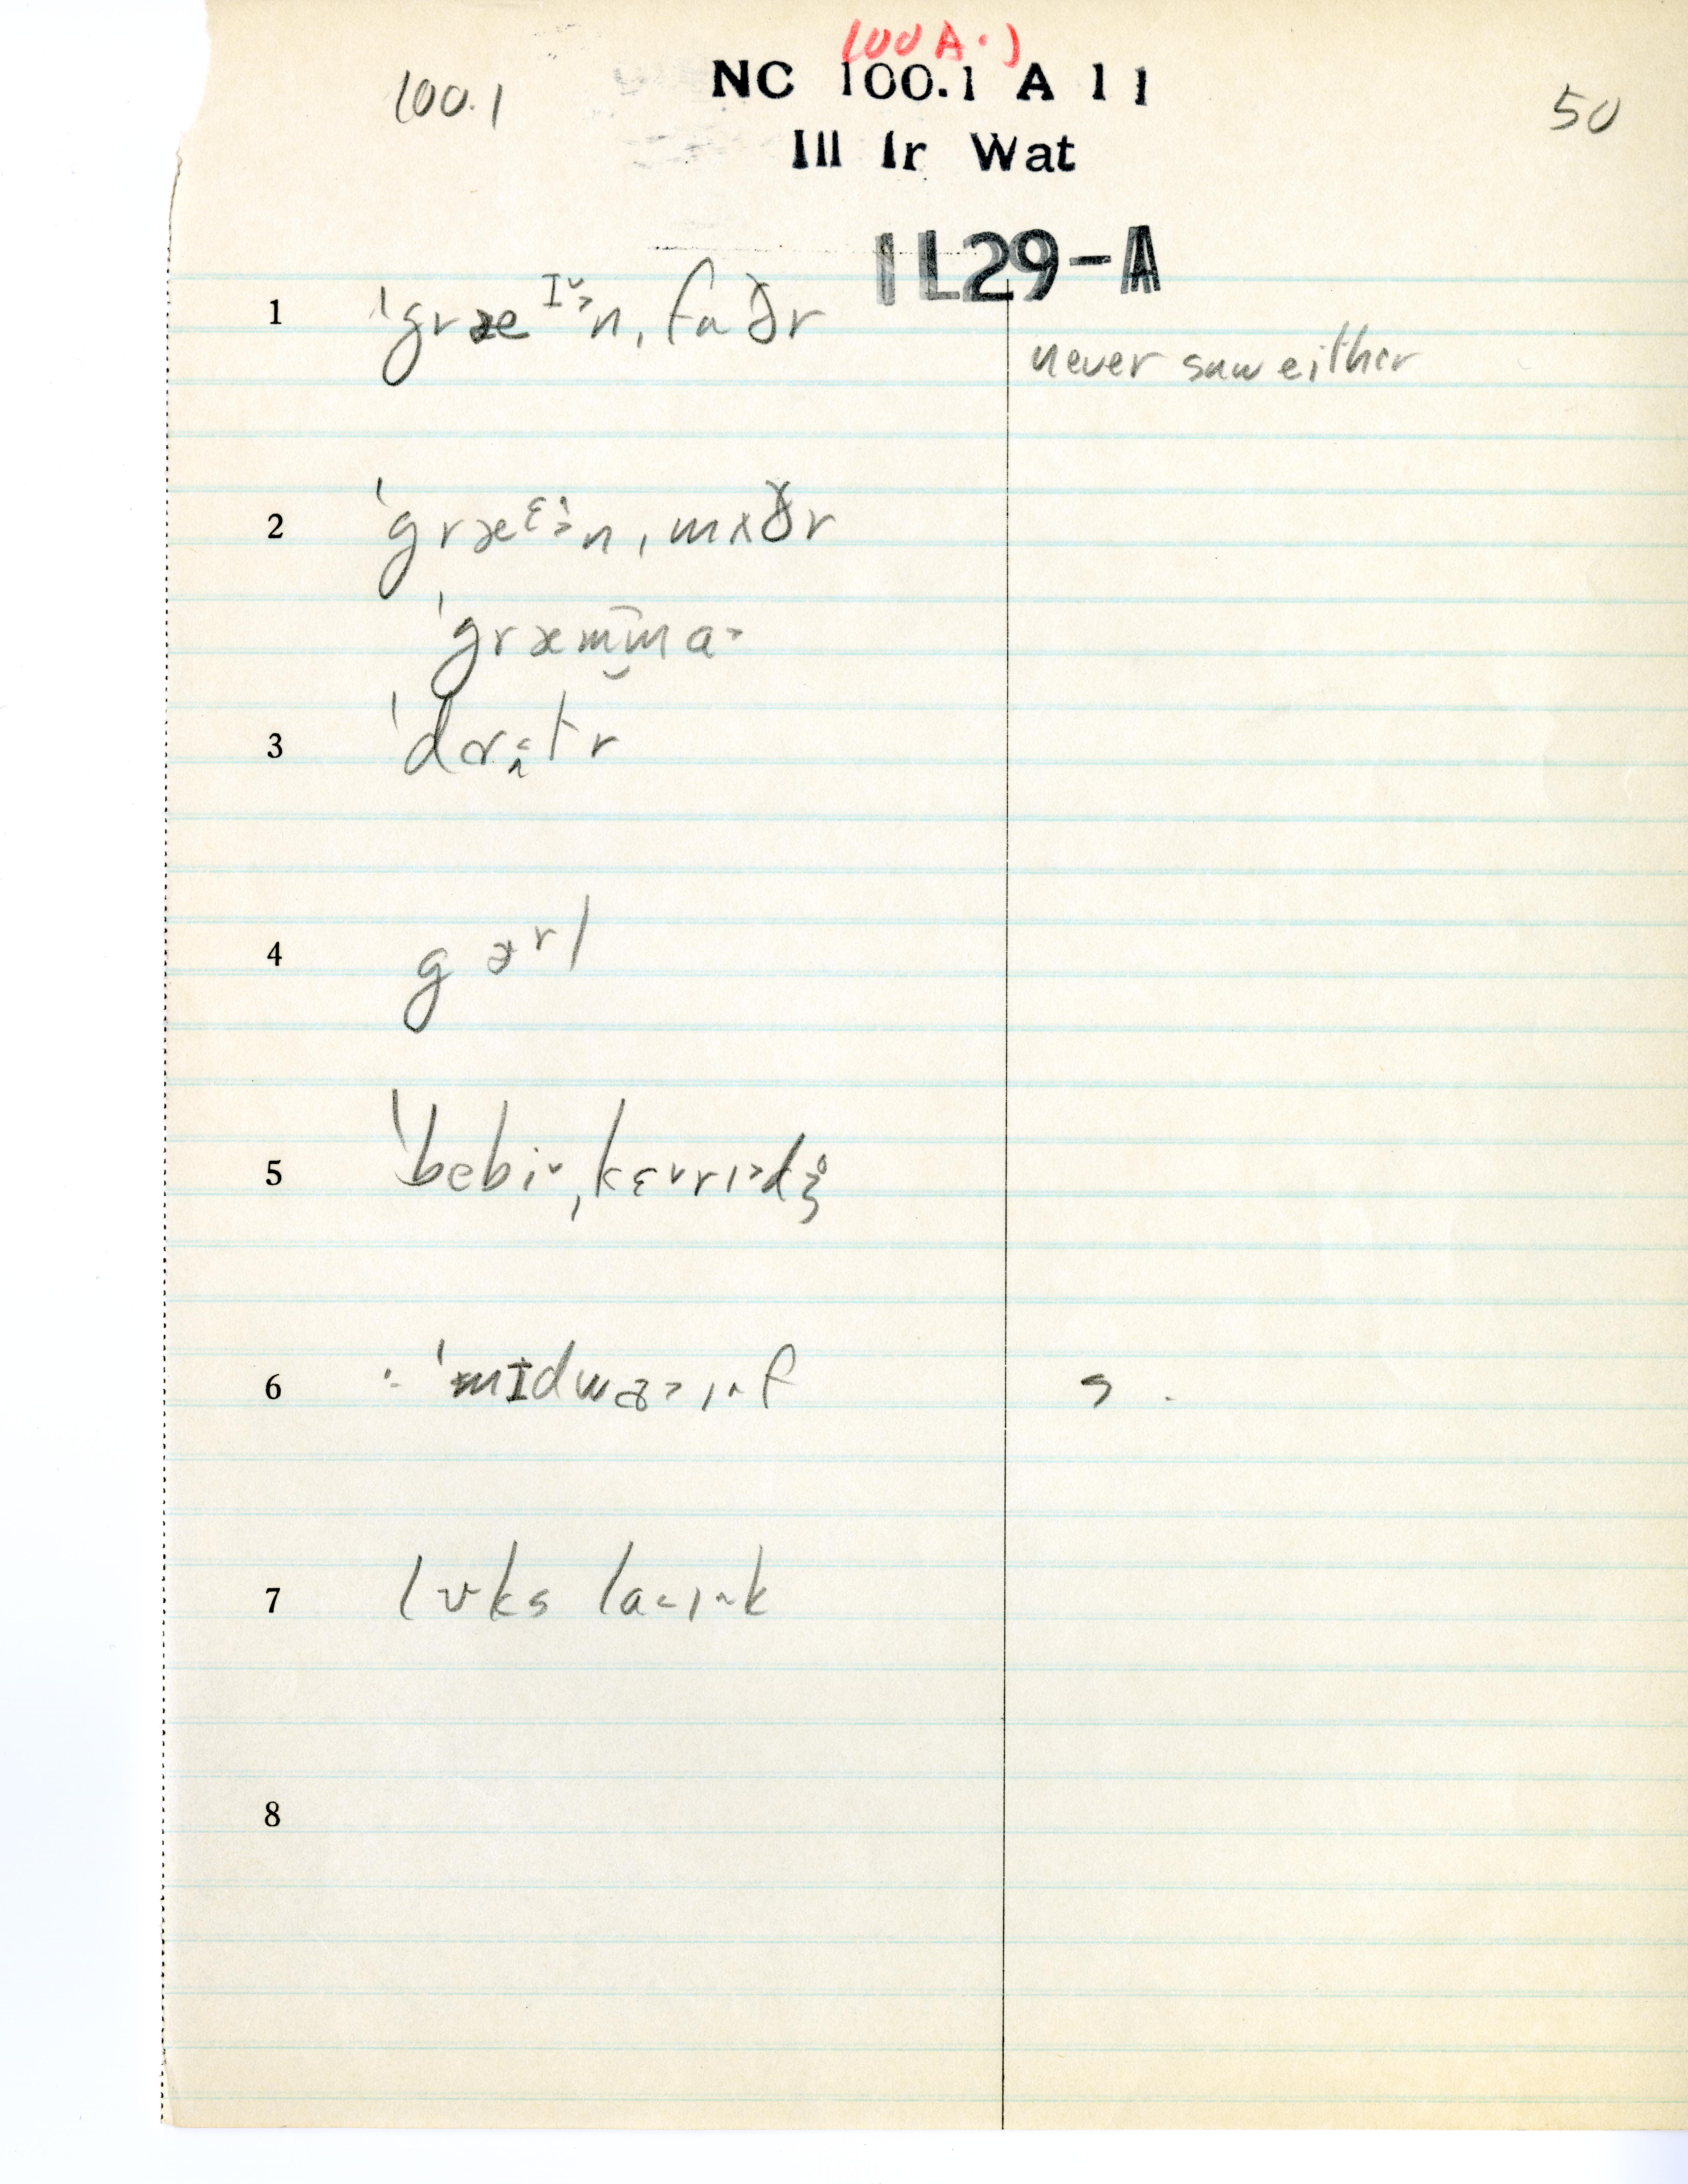 (00A.)
100.1
NC 100.1 A 11
50
Ill Ir Wat
IL29-A
1 ˈgræᴵ˅˃n,faðr
never saw either
2 ˈgræᵋ˔˃n,mʌðr
ˈgræmma˃
3 ˈdɔtr
4 gɚl
5 ˈbebi˅,kɛ˅rɪ˃dʒ̊
6 :ˈmɪdwa˃ɪ^f
s .
7 lʊks la˂ɪ^k
8